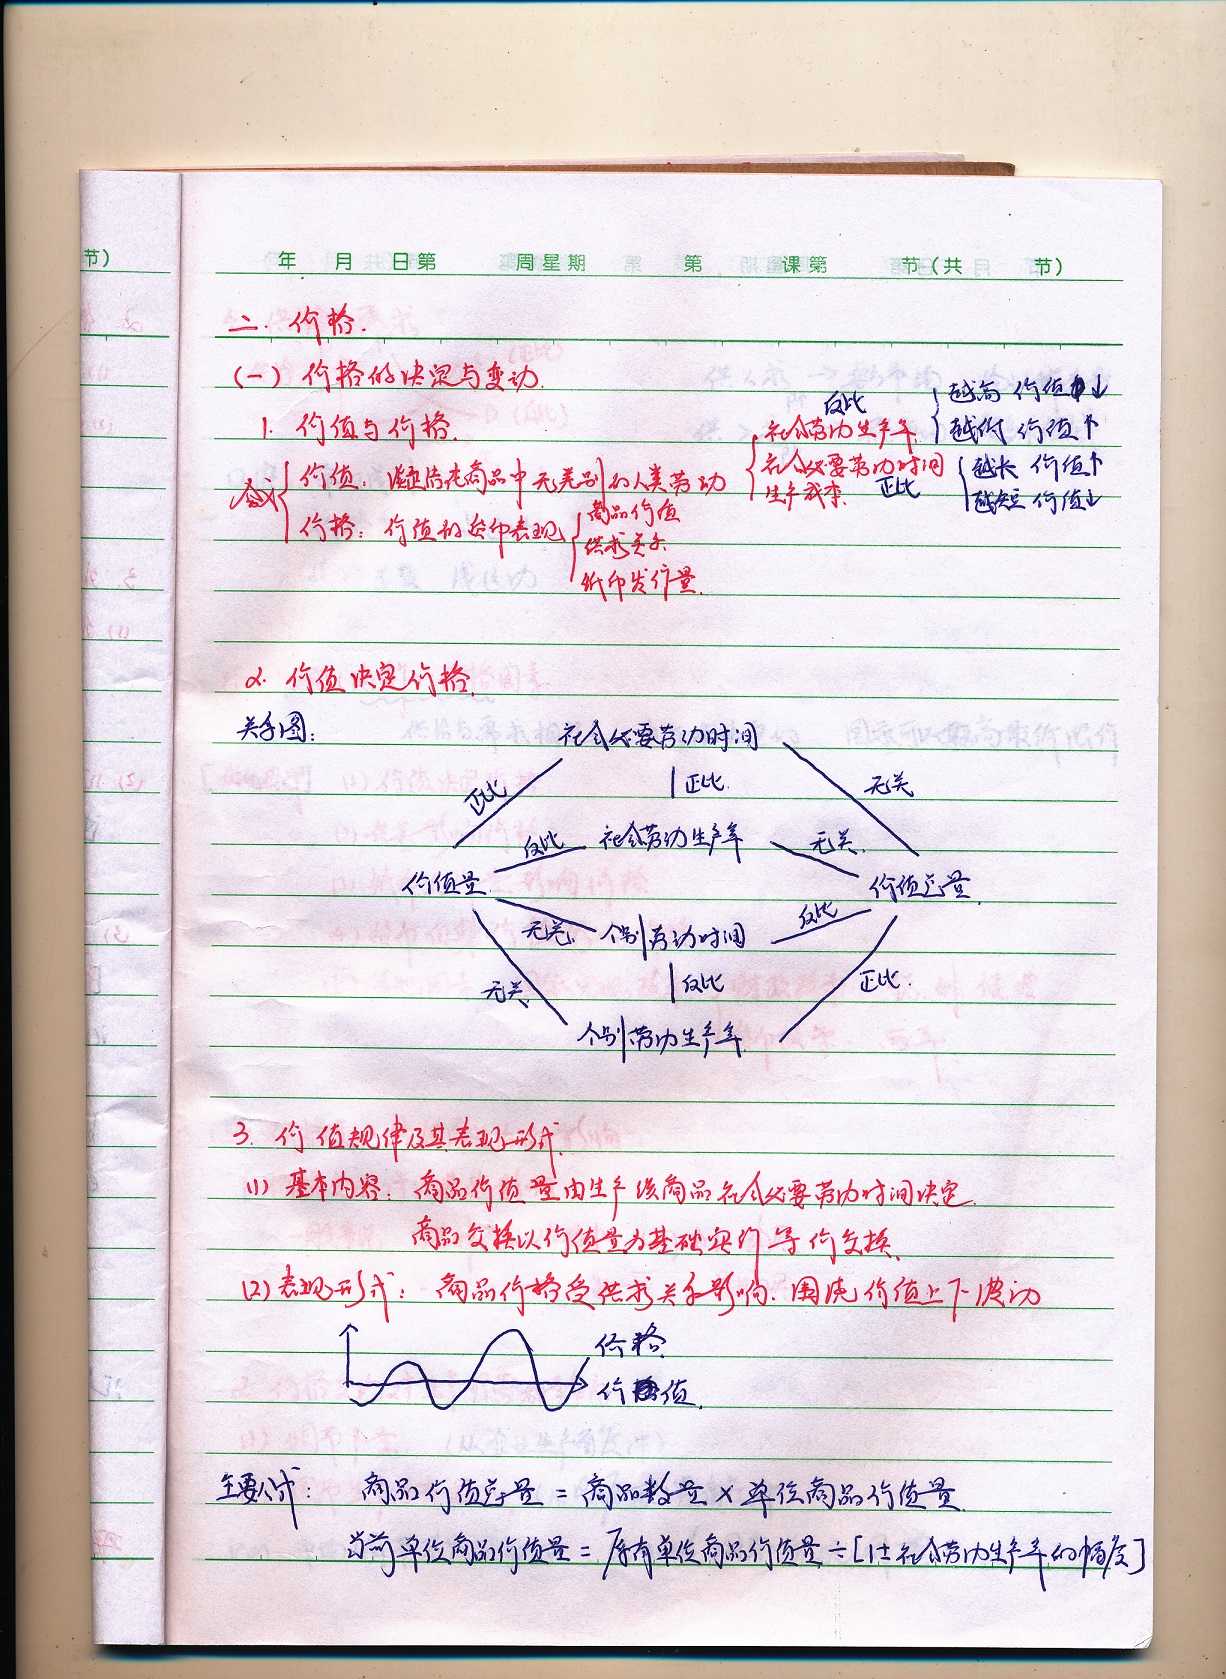 节）
年 月 日第 周星期 第 课第 节（共 节）
二. 价格.
(一) 价格的决定与变动.
1. 价值与价格.
价值: 凝结在商品中无差别的人类劳动
价格: 价值的货币表现
商品价值
供求关系
纸币发行量.
反比
社会劳动生产率
越高 价值↓
越低 价值↑
社会必要劳动时间
正比
越长 价值↑
越短 价值↓
生产成本.
2. 价值决定价格.
关系图:
社会必要劳动时间
正比 正比. 无关
反比 社会劳动生产率 无关.
价值量. 价值总量.
无关. 个别劳动时间 反比
无关. 反比 正比.
个别劳动生产率.
3. 价值规律及其表现形式.
(1) 基本内容: 商品价值量由生产该商品社会必要劳动时间决定.
商品交换以价值量为基础实行等价交换.
(2) 表现形式: 商品价格受供求关系影响. 围绕价值上下波动
价格.
价值.
主要公式: 商品价值总量 = 商品数量 × 单位商品价值量.
当前单位商品价值量 = 原有单位商品价值量 ÷ [1±社会劳动生产率的幅度]